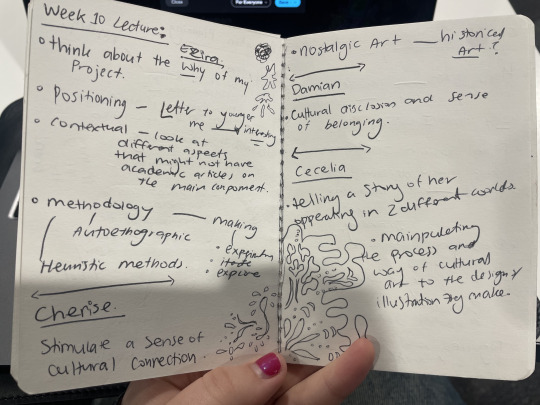 Week 10 Lecture:
Ezzira
think about the why of my
Project.
Positioning — Letter to younger
me → interesting
Contextual — look at
different aspects
that might not have
academic articles on
the main component.
methodology — making
Autoethographic
experiment
explore
Heuristic methods.
Cherise.
Stimulate a sense of
cultural connection.
nostalgic Art — historiced
Art?
Damian
Cultural disclosion and sense
of belonging.
Cecelia
telling a story of her
operating in 2 different worlds.
mainpulating
the process and
way of cultural
art to the design/
illustration
make.